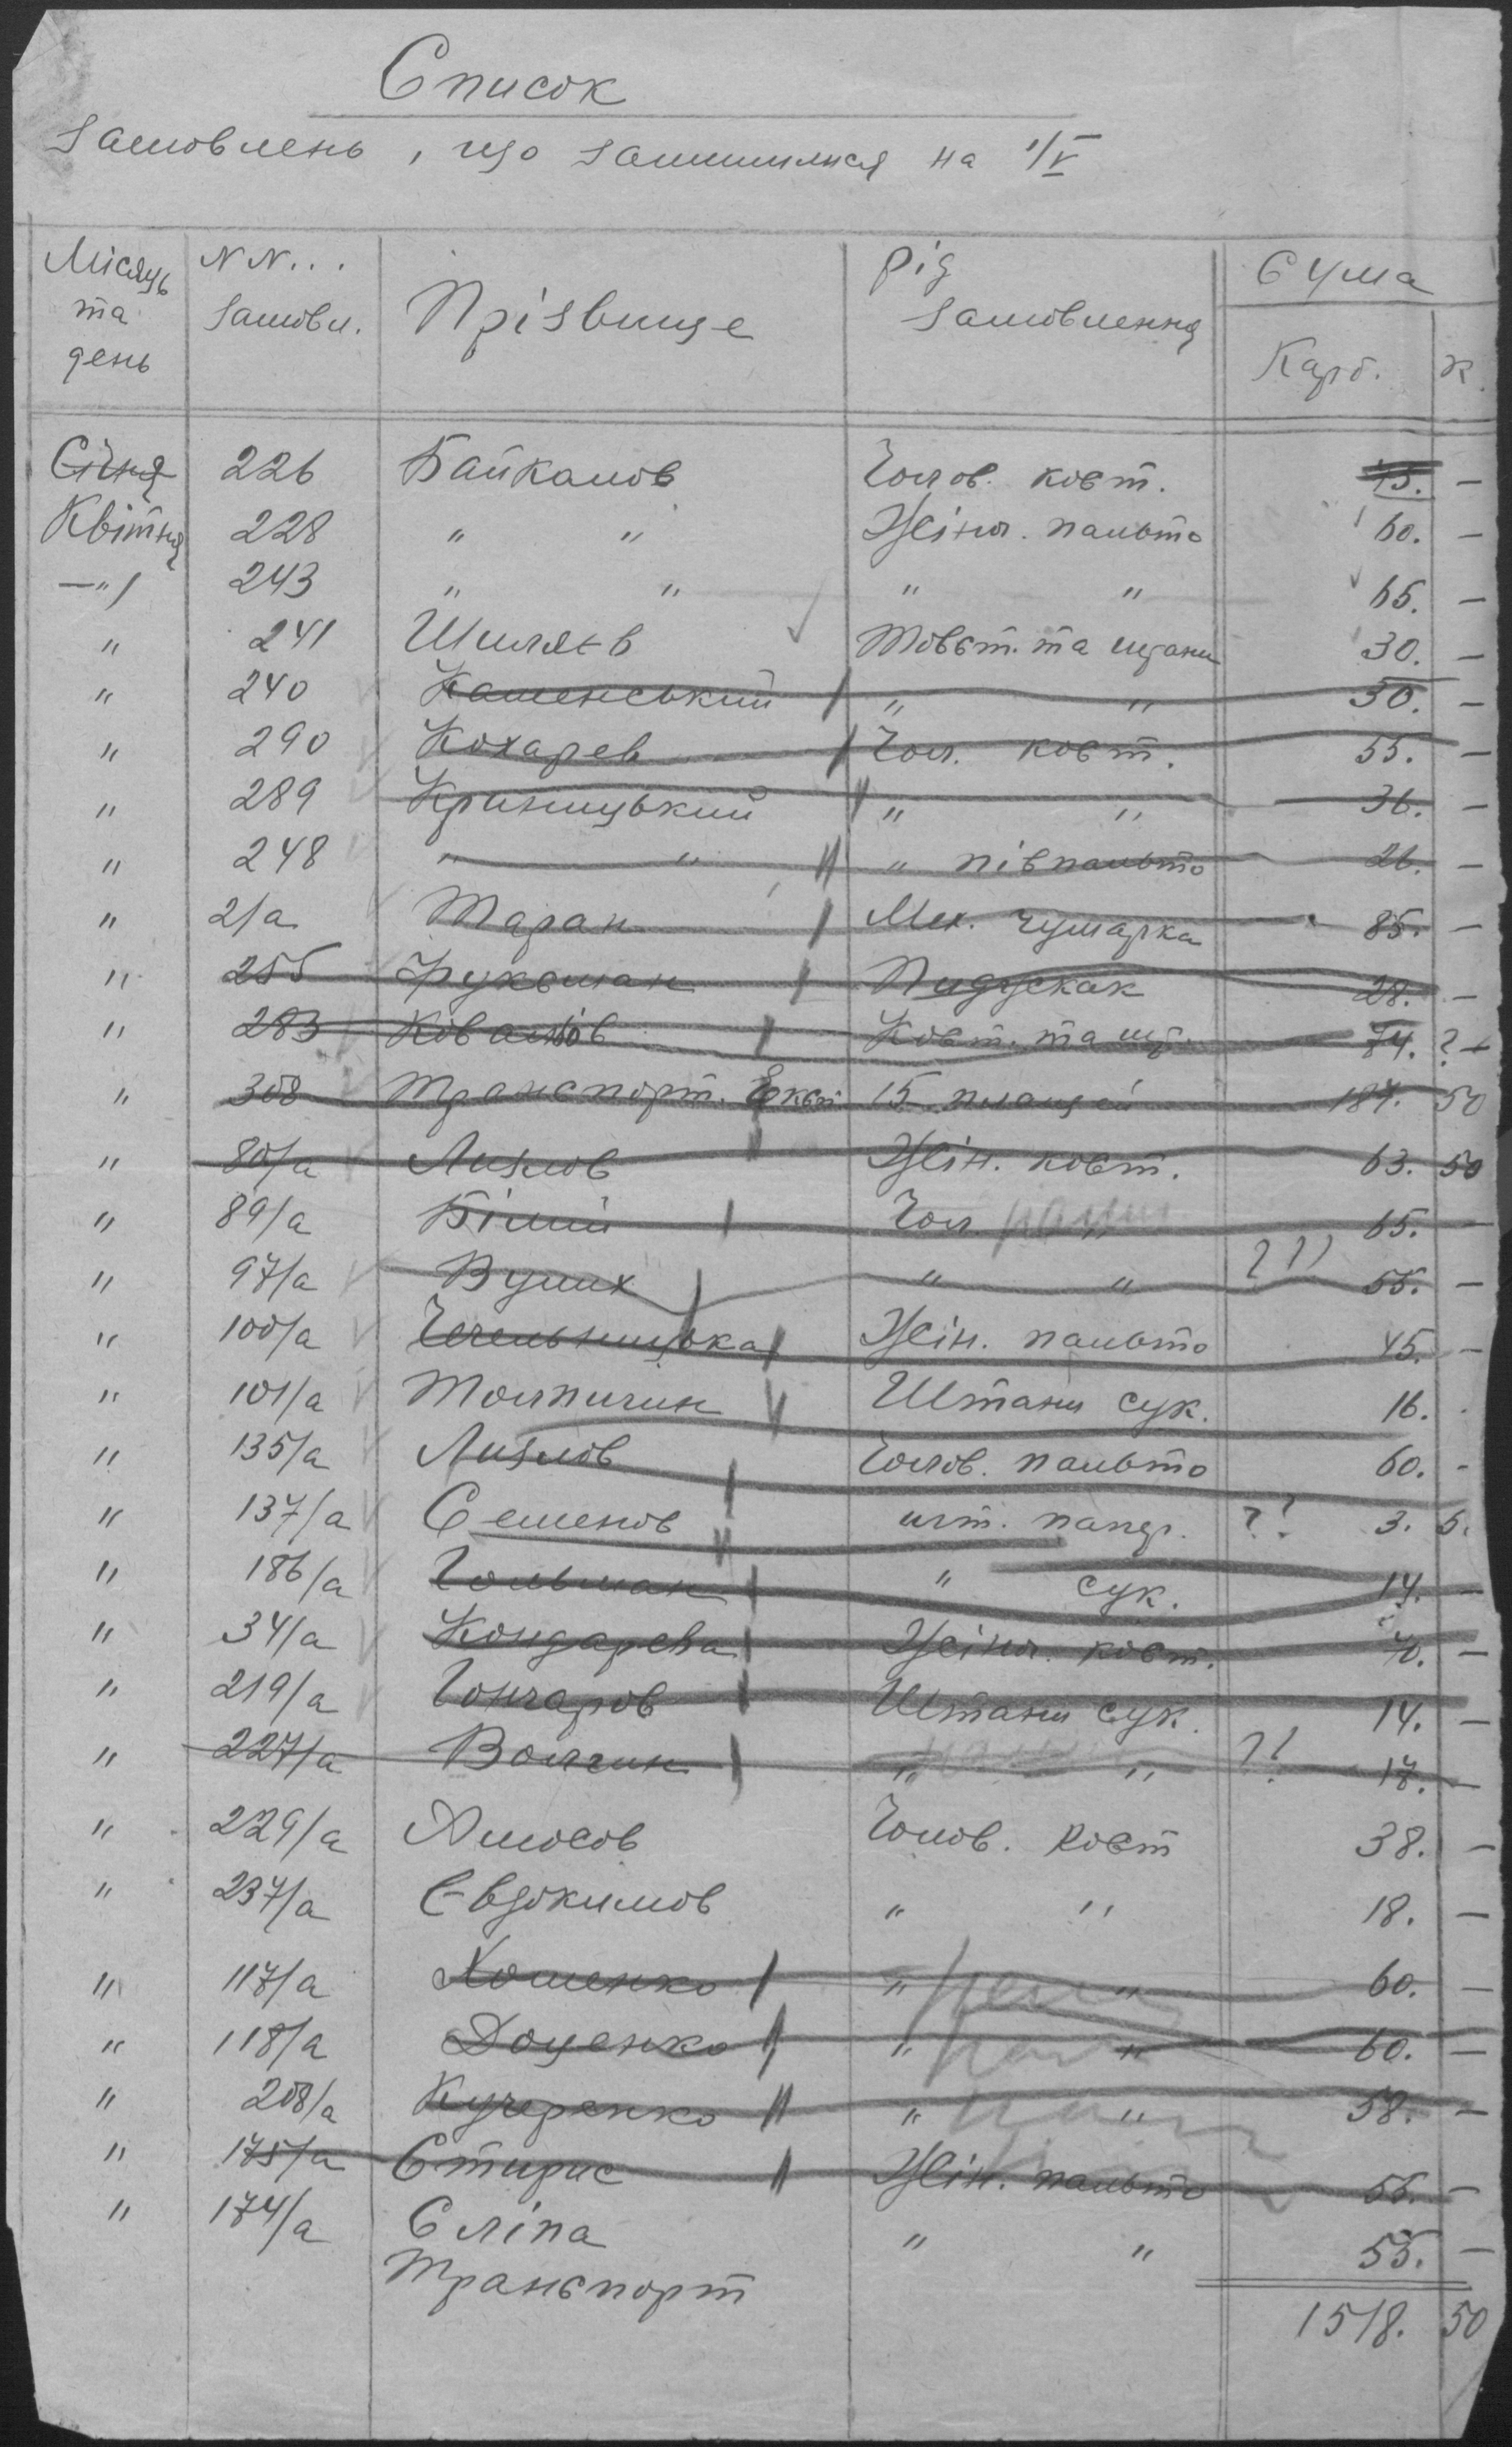 Список
Замовлень, що залишилися на 1/V
Місяць та день | N N... замовл. | Прізвище | рід замовлення | Сума Карб. | К.
Січня 226 Байкалов Чолов. кост. 45. —
Квітня 228 " " Жіноч. пальто 60. —
—"— 243 " " " " 65. —
" 241 Шиляєв Товст. та штани 30. —
" 240 Каменський " " 30. —
" 290 Кохарев Чол. кост. 55. —
" 289 Криницький " " 36. —
" 248 " " " півпальто 26. —
" 2/а Таран Мех. чумарка 85. —
" 255 Фуксман 28. —
" 283 Ковальов Кост. та шт. 74. ? —
" 308 Транспорт. 15 плащей 187. 50
" 80/а Лизлов Жін. кост. 63. 50
" 89/а Білий Чол. " 65. —
" 97/а Вулих " " ? ? ) 55. —
" 100/а Чечельницька Жін. пальто 45. —
" 101/а Толпичин Штани сук. 16. -
" 135/а Лизлов Чолов. пальто 60. -
" 137/а Семенов шт. ? ? 3. 5.
" 186/а Гольман " сук. 14. —
" 34/а Кондарева Жіноч. кост. 70. —
" 219/а Гончаров Штани сук. 14. —
" 227/а Волчин " " ? ? 17. —
" 229/а Амосов Чолов. Кост 38. —
" 237/а Євдокимов " " 18. —
" 117/а Хоменко " " 60. —
" 118/а Доценко " " 60. —
" 208/а Кучеренко " " 58. —
" 175/а Стирис Жін. пальто 55. —
" 174/а Сліпа " " 55. —
Транспорт
1518. 50